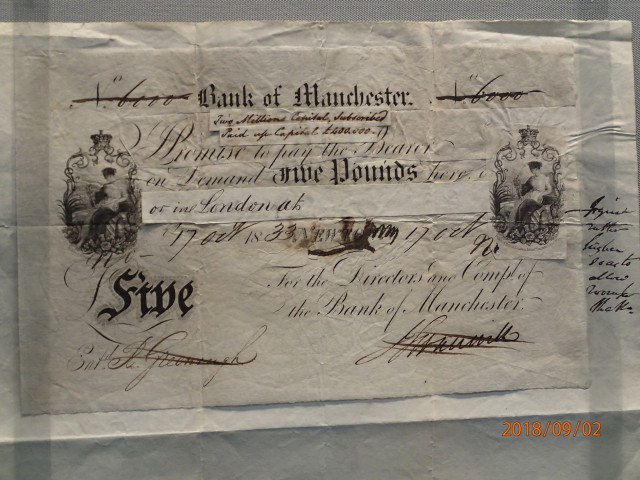 No 6000 Bank of Manchester. No 6000
Two Millions Capital, Subscribed
Paid up Capital £400,000
Promise to pay the Bearer
on Demand Five Pounds here
or in London at
17 Oct 1833 17 Oct
No
Five
For the Directors and Compy of
the Bank of Manchester.
Entd
higher
allow
2018/09/02